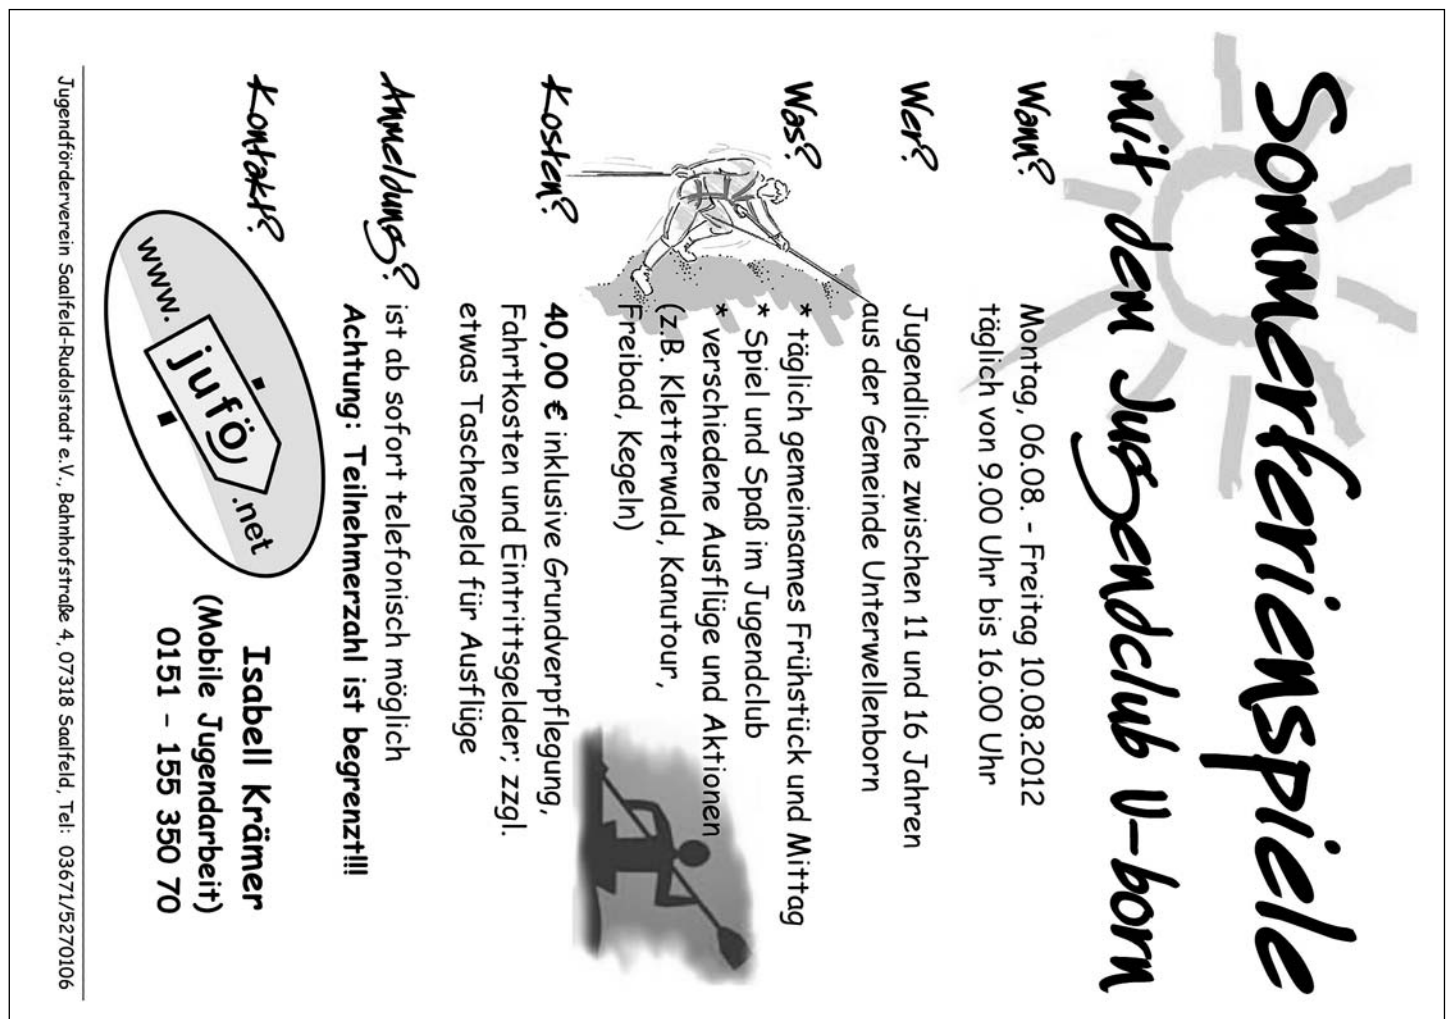 Sommerferienspiele
mit dem Jugendclub U-born
Wann?
Montag, 06.08. - Freitag 10.08.2012
täglich von 9.00 Uhr bis 16.00 Uhr
Wer?
Jugendliche zwischen 11 und 16 Jahren
aus der Gemeinde Unterwellenborn
Was?
* täglich gemeinsames Frühstück und Mittag
* Spiel und Spaß im Jugendclub
* verschiedene Ausflüge und Aktionen
(z.B. Kletterwald, Kanutour,
Freibad, Kegeln)
Kosten?
40,00 € inklusive Grundverpflegung,
Fahrtkosten und Eintrittsgelder; zzgl.
etwas Taschengeld für Ausflüge
Anmeldung?
ist ab sofort telefonisch möglich
Achtung: Teilnehmerzahl ist begrenzt!!!
Kontakt?
www.
jufö
.net
Isabell Krämer
(Mobile Jugendarbeit)
0151 - 155 350 70
Jugendförderverein Saalfeld-Rudolstadt e.V., Bahnhofstraße 4, 07318 Saalfeld, Tel: 03671/5270106